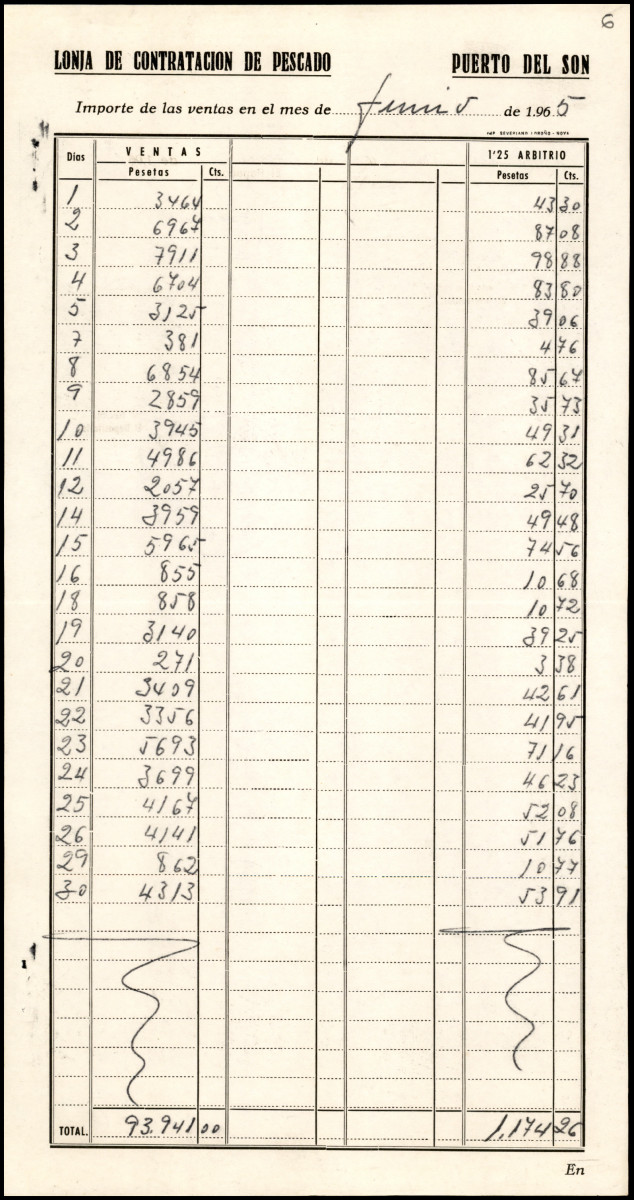 6
LONJA DE CONTRATACION DE PESCADO PUERTO DEL SON
Importe de las ventas en el mes de Junio de 1.965
IMP. SEVERIANO - NOYA
Días VENTAS 1'25 ARBITRIO
Pesetas Cts. Pesetas Cts.
1 3464 43 30
2 6967 87 08
3 7911 98 88
4 6704 83 80
5 3125 39 06
7 381 4 76
8 6854 85 67
9 2859 35 73
10 3945 49 31
11 4986 62 32
12 2057 25 70
14 3959 49 48
15 5965 74 56
16 855 10 68
18 858 10 72
19 3140 39 25
20 271 3 38
21 3409 42 61
22 3356 41 95
23 5693 71 16
24 3699 46 23
25 4167 52 08
26 4141 51 76
29 862 10 77
30 4313 53 91
TOTAL. 93.941 00 1,174 26
En